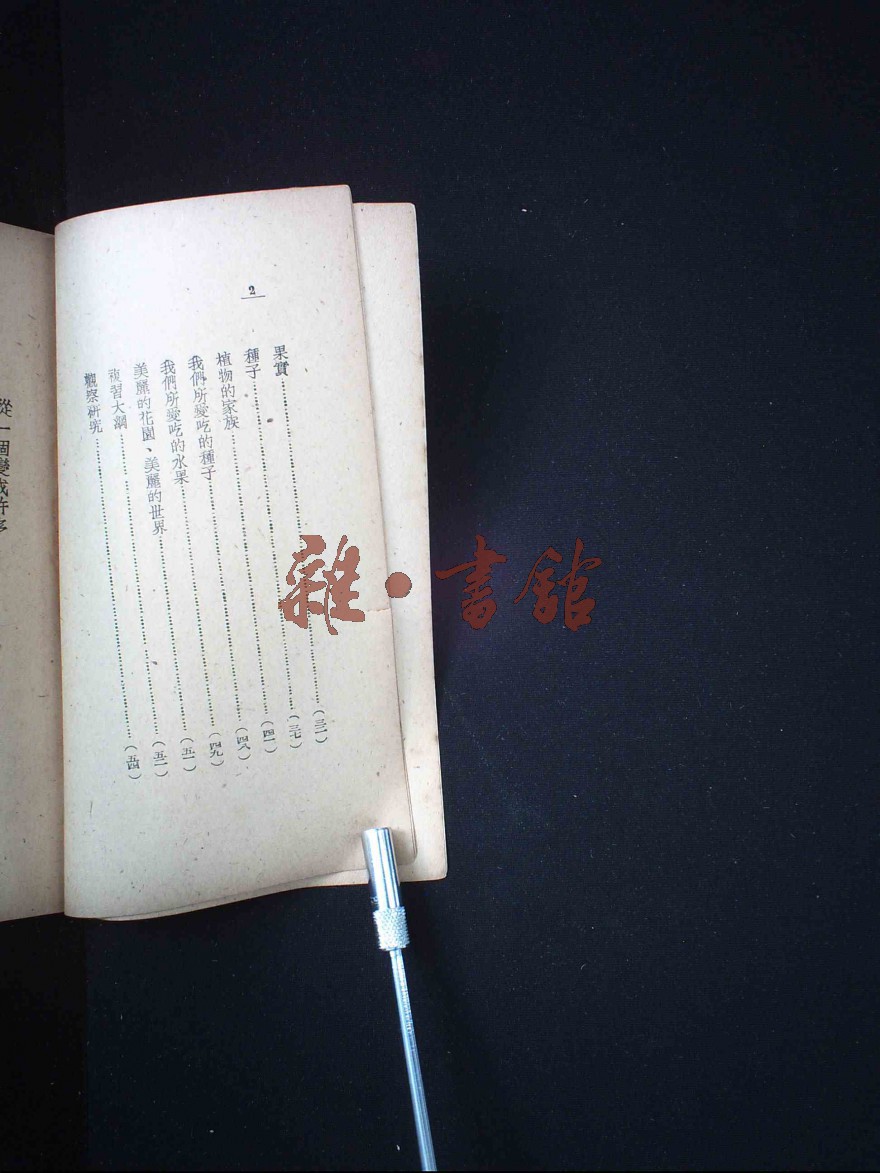 2
果實……(三一)
種子……(三七)
植物的家族……(四一)
我們所愛吃的種子……(四八)
我們所愛吃的水果……(四九)
美麗的花園、美麗的世界……(五一)
複習大綱……(五二)
觀察研究……(五四)
從一個變成許多
雜·書館